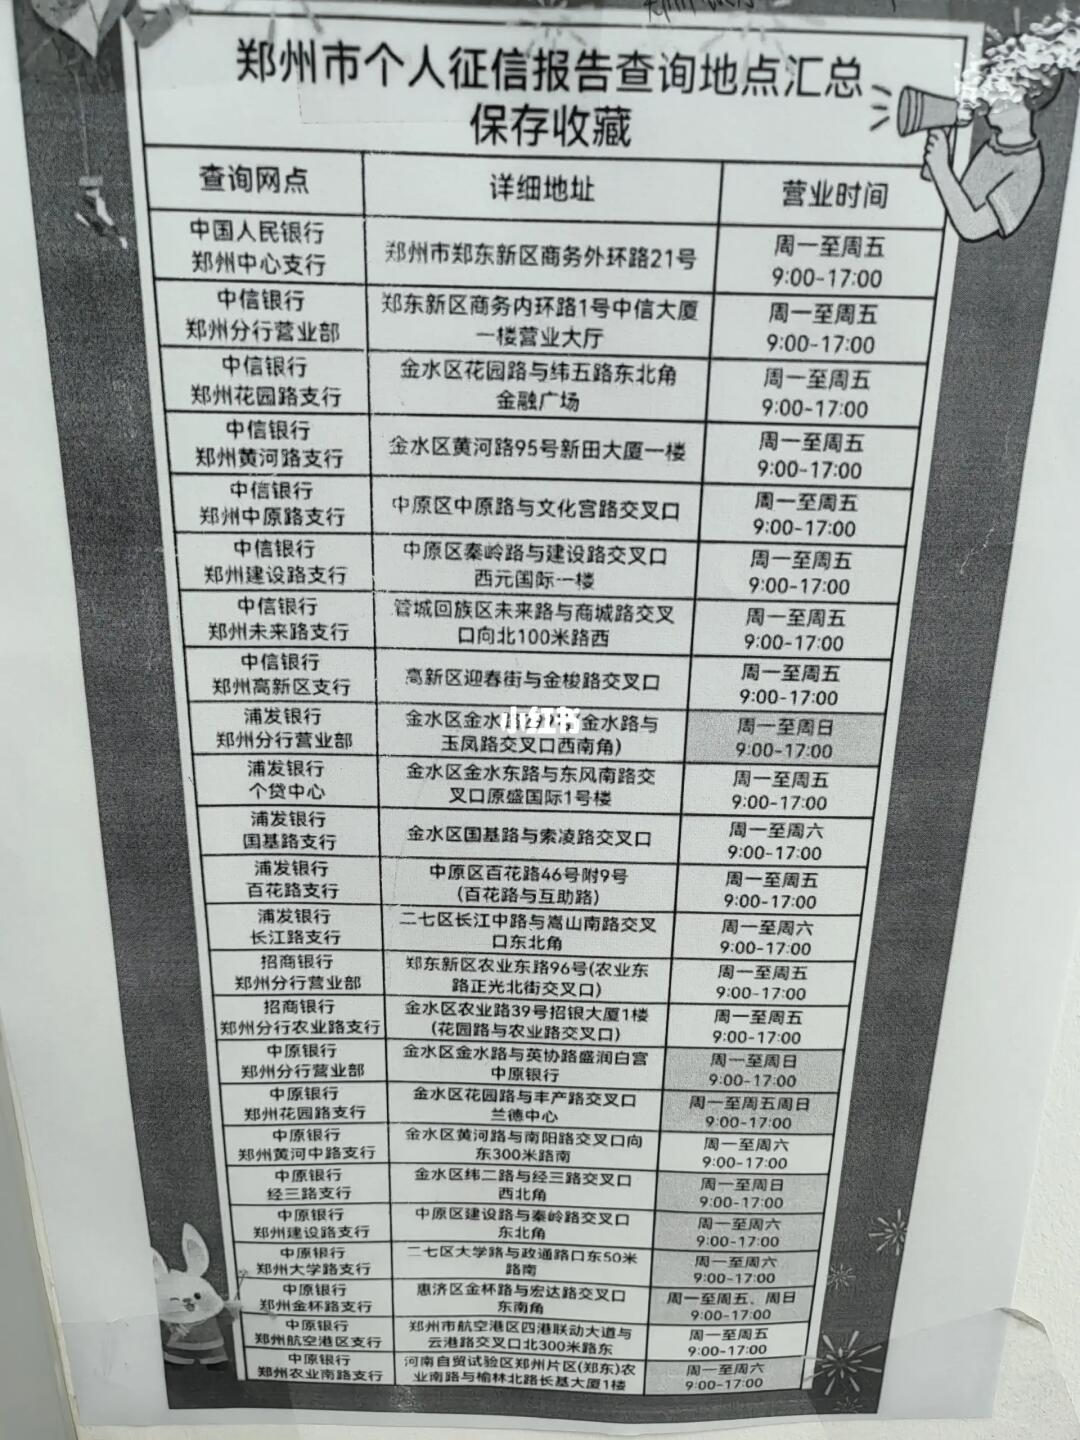 郑州市个人征信报告查询地点汇总
保存收藏
查询网点 详细地址 营业时间
中国人民银行
郑州中心支行
郑州市郑东新区商务外环路21号
周一至周五
9:00-17:00
中信银行
郑州分行营业部
郑东新区商务内环路1号中信大厦
一楼营业大厅
周一至周五
9:00-17:00
中信银行
郑州花园路支行
金水区花园路与纬五路东北角
金融广场
周一至周五
9:00-17:00
中信银行
郑州黄河路支行
金水区黄河路95号新田大厦一楼
周一至周五
9:00-17:00
中信银行
郑州中原路支行
中原区中原路与文化宫路交叉口
周一至周五
9:00-17:00
中信银行
郑州建设路支行
中原区秦岭路与建设路交叉口
西元国际一楼
周一至周五
9:00-17:00
中信银行
郑州未来路支行
管城回族区未来路与商城路交叉
口向北100米路西
周一至周五
9:00-17:00
中信银行
郑州高新区支行
高新区迎春街与金梭路交叉口
周一至周五
9:00-17:00
浦发银行
郑州分行营业部
金水区金水 金水路与
玉凤路交叉口西南角)
小红书
周一至周日
9:00-17:00
浦发银行
个贷中心
金水区金水东路与东风南路交
叉口原盛国际1号楼
周一至周五
9:00-17:00
浦发银行
国基路支行
金水区国基路与索凌路交叉口
周一至周六
9:00-17:00
浦发银行
百花路支行
中原区百花路46号附9号
(百花路与互助路)
周一至周五
9:00-17:00
浦发银行
长江路支行
二七区长江中路与嵩山南路交叉
口东北角
周一至周六
9:00-17:00
招商银行
郑州分行营业部
郑东新区农业东路96号(农业东
路正光北街交叉口)
周一至周五
9:00-17:00
招商银行
郑州分行农业路支行
金水区农业路39号招银大厦1楼
(花园路与农业路交叉口)
周一至周五
9:00-17:00
中原银行
郑州分行营业部
金水区金水路与英协路盛润白宫
中原银行
周一至周日
9:00-17:00
中原银行
郑州花园路支行
金水区花园路与丰产路交叉口
兰德中心
周一至周五周日
9:00-17:00
中原银行
郑州黄河中路支行
金水区黄河路与南阳路交叉口向
东300米路南
周一至周六
9:00-17:00
中原银行
经三路支行
金水区纬二路与经三路交叉口
西北角
周一至周日
9:00-17:00
中原银行
郑州建设路支行
中原区建设路与秦岭路交叉口
东北角
周一至周六
9:00-17:00
中原银行
郑州大学路支行
二七区大学路与政通路口东50米
路南
周一至周六
9:00-17:00
中原银行
郑州金杯路支行
惠济区金杯路与宏达路交叉口
东南角
周一至周五、周日
9:00-17:00
中原银行
郑州航空港区支行
郑州市航空港区四港联动大道与
云港路交叉口北300米路东
周一至周五
9:00-17:00
中原银行
郑州农业南路支行
河南自贸试验区郑州片区(郑东)农
业南路与榆林北路长基大厦1楼
周一至周六
9:00-17:00